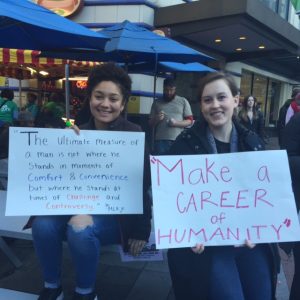 "The Ultimate Measure of
a man is not where he
Stands in moments of
Comfort & Convenience
but where he Stands at
times of Challenge and
Controversy." -MLK Jr
"Make a
CAREER
of
HUMANITY"